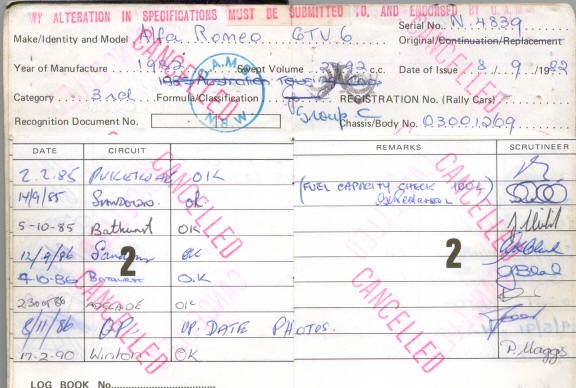 ANY ALTERATION IN SPECIFICATIONS MUST BE SUBMITTED TO, AND ENDORSED BY C.A.M.S.
Serial No. N.4839
Make/Identity and Model Alfa Romeo GTV6
Original/Continuation/Replacement
Year of Manufacture 1982 Swept Volume c.c. Date of Issue 8/9/1982
Category 3rd Formula/Classification REGISTRATION No. (Rally Cars)
Group C
C.A.M.S.
N.S.W.
Recognition Document No. Chassis/Body No. 03001269
DATE CIRCUIT REMARKS SCRUTINEER
2.2.85 PUKEKOHE OIK
(FUEL CAPACITY CHECK 100L)
14/9/85 SANDOWN OK
5-10-85 Bathurst OIK
12/9/86 Sandown OK
4-10-86 BATHURST O.K
ADELAIDE OIK
8/11/86 GP UP.DATE PHOTOS.
17-2-90 Winton OK P. Maggs
2
2
CANCELLED
CANCELLED
CANCELLED
CANCELLED
CANCELLED
CANCELLED
LOG BOOK No.